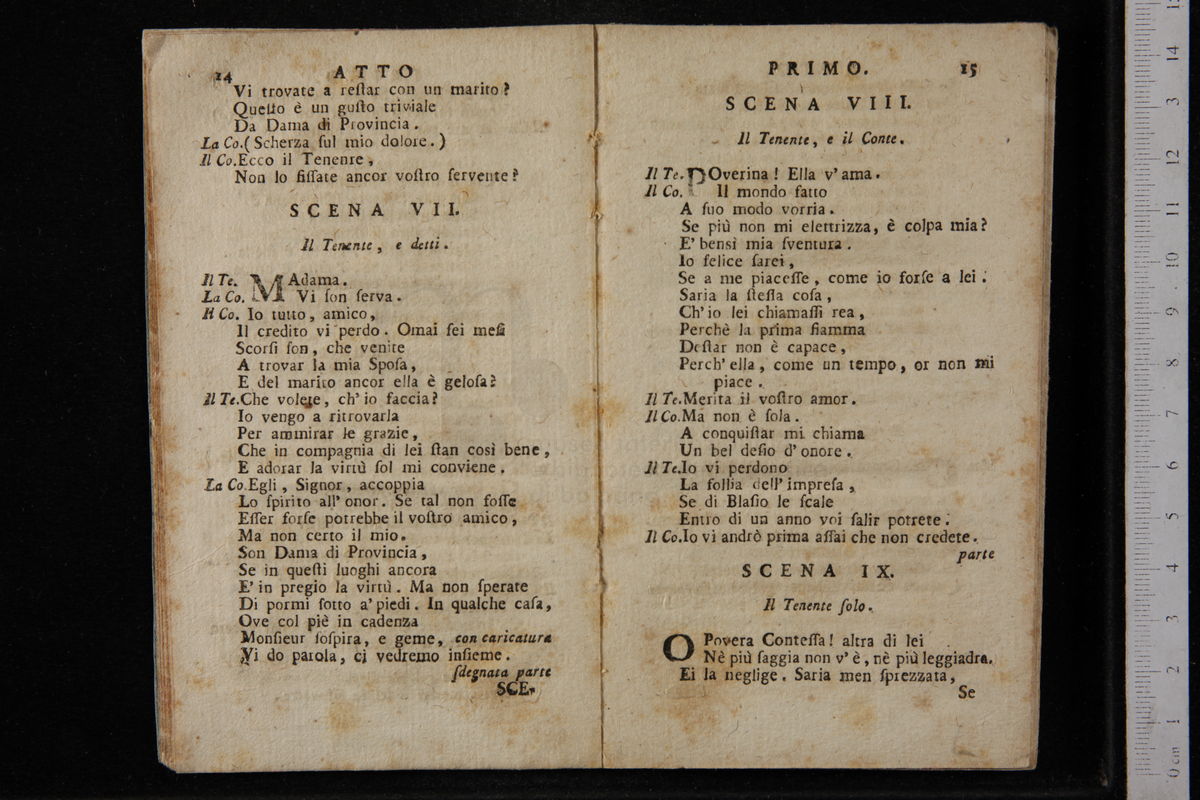 14 ATTO
Vi trovate a reſtar con un marito?
Queſto è un guſto triviale
Da Dama di Provincia.
La Co.(Scherza ſul mio dolore.)
Il Co.Ecco il Tenenre,
Non lo fiſſate ancor voſtro ſervente?
SCENA VII.
Il Tenente, e detti.
Il Te. MAdama.
La Co. Vi ſon ſerva.
Il Co. Io tutto, amico,
Il credito vi perdo. Omai ſei meſi
Scorſi ſon, che venite
A trovar la mia Spoſa,
E del marito ancor ella è geloſa?
Il Te.Che volete, ch'io faccia?
Io vengo a ritrovarla
Per ammirar le grazie,
Che in compagnia di lei ſtan così bene,
E adorar la virtù ſol mi conviene.
La Co.Egli, Signor, accoppia
Lo ſpirito all' onor. Se tal non foſſe
Eſſer forſe potrebbe il voſtro amico,
Ma non certo il mio.
Son Dama di Provincia,
Se in queſti luoghi ancora
E' in pregio la virtù. Ma non ſperate
Di pormi ſotto a' piedi. In qualche caſa,
Ove col piè in cadenza
Monſieur ſoſpira, e geme, con caricatura
Vi do parola, ci vedremo inſieme.
ſdegnata parte
SCE-
PRIMO. 15
SCENA VIII.
Il Tenente, e il Conte.
Il Te. POverina! Ella v' ama.
Il Co. Il mondo fatto
A ſuo modo vorria.
Se più non mi elettrizza, è colpa mia?
E' bensì mia ſventura.
Io felice ſarei,
Se a me piaceſſe, come io forſe a lei.
Saria la ſteſſa coſa,
Ch' io lei chiamaſſi rea,
Perchè la prima fiamma
Deſtar non è capace,
Perch' ella, come un tempo, or non mi
piace.
Il Te.Merita il voſtro amor.
Il Co.Ma non è ſola.
A conquiſtar mi chiama
Un bel deſio d' onore.
Il Te.Io vi perdono
La follia dell' impreſa,
Se di Blaſio le ſcale
Entro di un anno voi ſalir potrete.
Il Co.Io vi andrò prima aſſai che non credete.
parte
SCENA IX.
Il Tenente ſolo.
O Povera Conteſſa! altra di lei
Nè più ſaggia non v' è, nè più leggiadra.
Ei la neglige. Saria men ſprezzata,
Se
0 cm 1 2 3 4 5 6 7 8 9 10 11 12 13 14